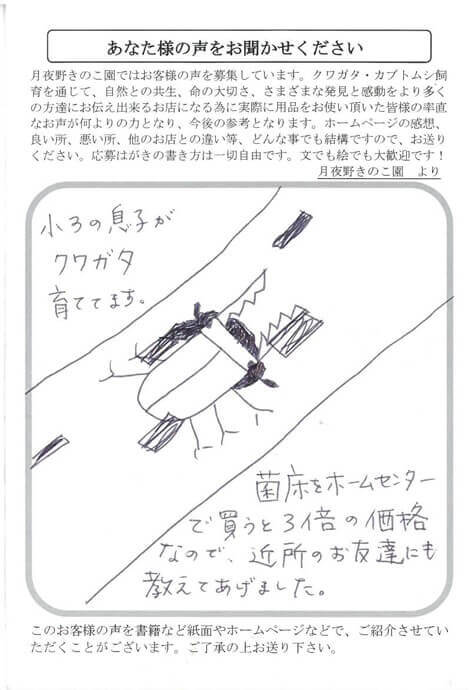 あなた様の声をお聞かせください
月夜野きのこ園ではお客様の声を募集しています。クワガタ・カブトムシ飼
育を通じて、自然との共生、命の大切さ、さまざまな発見と感動をより多く
の方達にお伝え出来るお店になる為に実際に用品をお使い頂いた皆様の率直
なお声が何よりの力となり、今後の参考となります。ホームページの感想、
良い所、悪い所、他のお店との違い等、どんな事でも結構ですので、お送り
ください。応募はがきの書き方は一切自由です。文でも絵でも大歓迎です！
月夜野きのこ園　より
小3の息子が
クワガタ
育ててます。
菌床をホームセンター
で買うと3倍の価格
なので、近所のお友達にも
教えてあげました。
このお客様の声を書籍など紙面やホームページなどで、ご紹介させてい
ただくことがございます。ご了承の上お送り下さい。